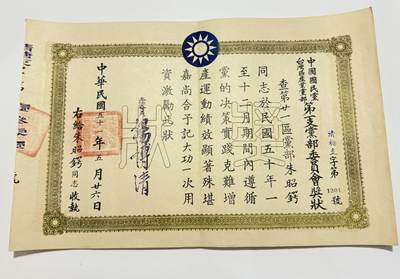 中國國民黨
台灣區產業黨部
第一支黨部委員會獎狀
字第1201號
查第廿一區黨部朱昭鍔
同志於民國五十年一
至十二月期間內遵循
黨的決策實踐克難增
產運動績效顯著殊堪
嘉尚合予記大功一次用
資激勵此狀
右給朱昭鍔同志收執
中華民國五十一年五月廿六日